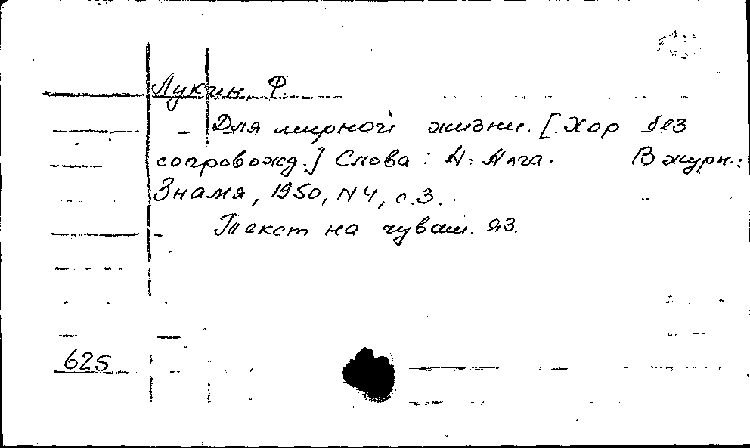 Лукин, Ф.
Для мирной жизни. [Хор без
сопровожд.] Слова: А. Алга. В журн.:
Знамя, 1950, N4, с.3.
Текст на чуваш. яз.
625